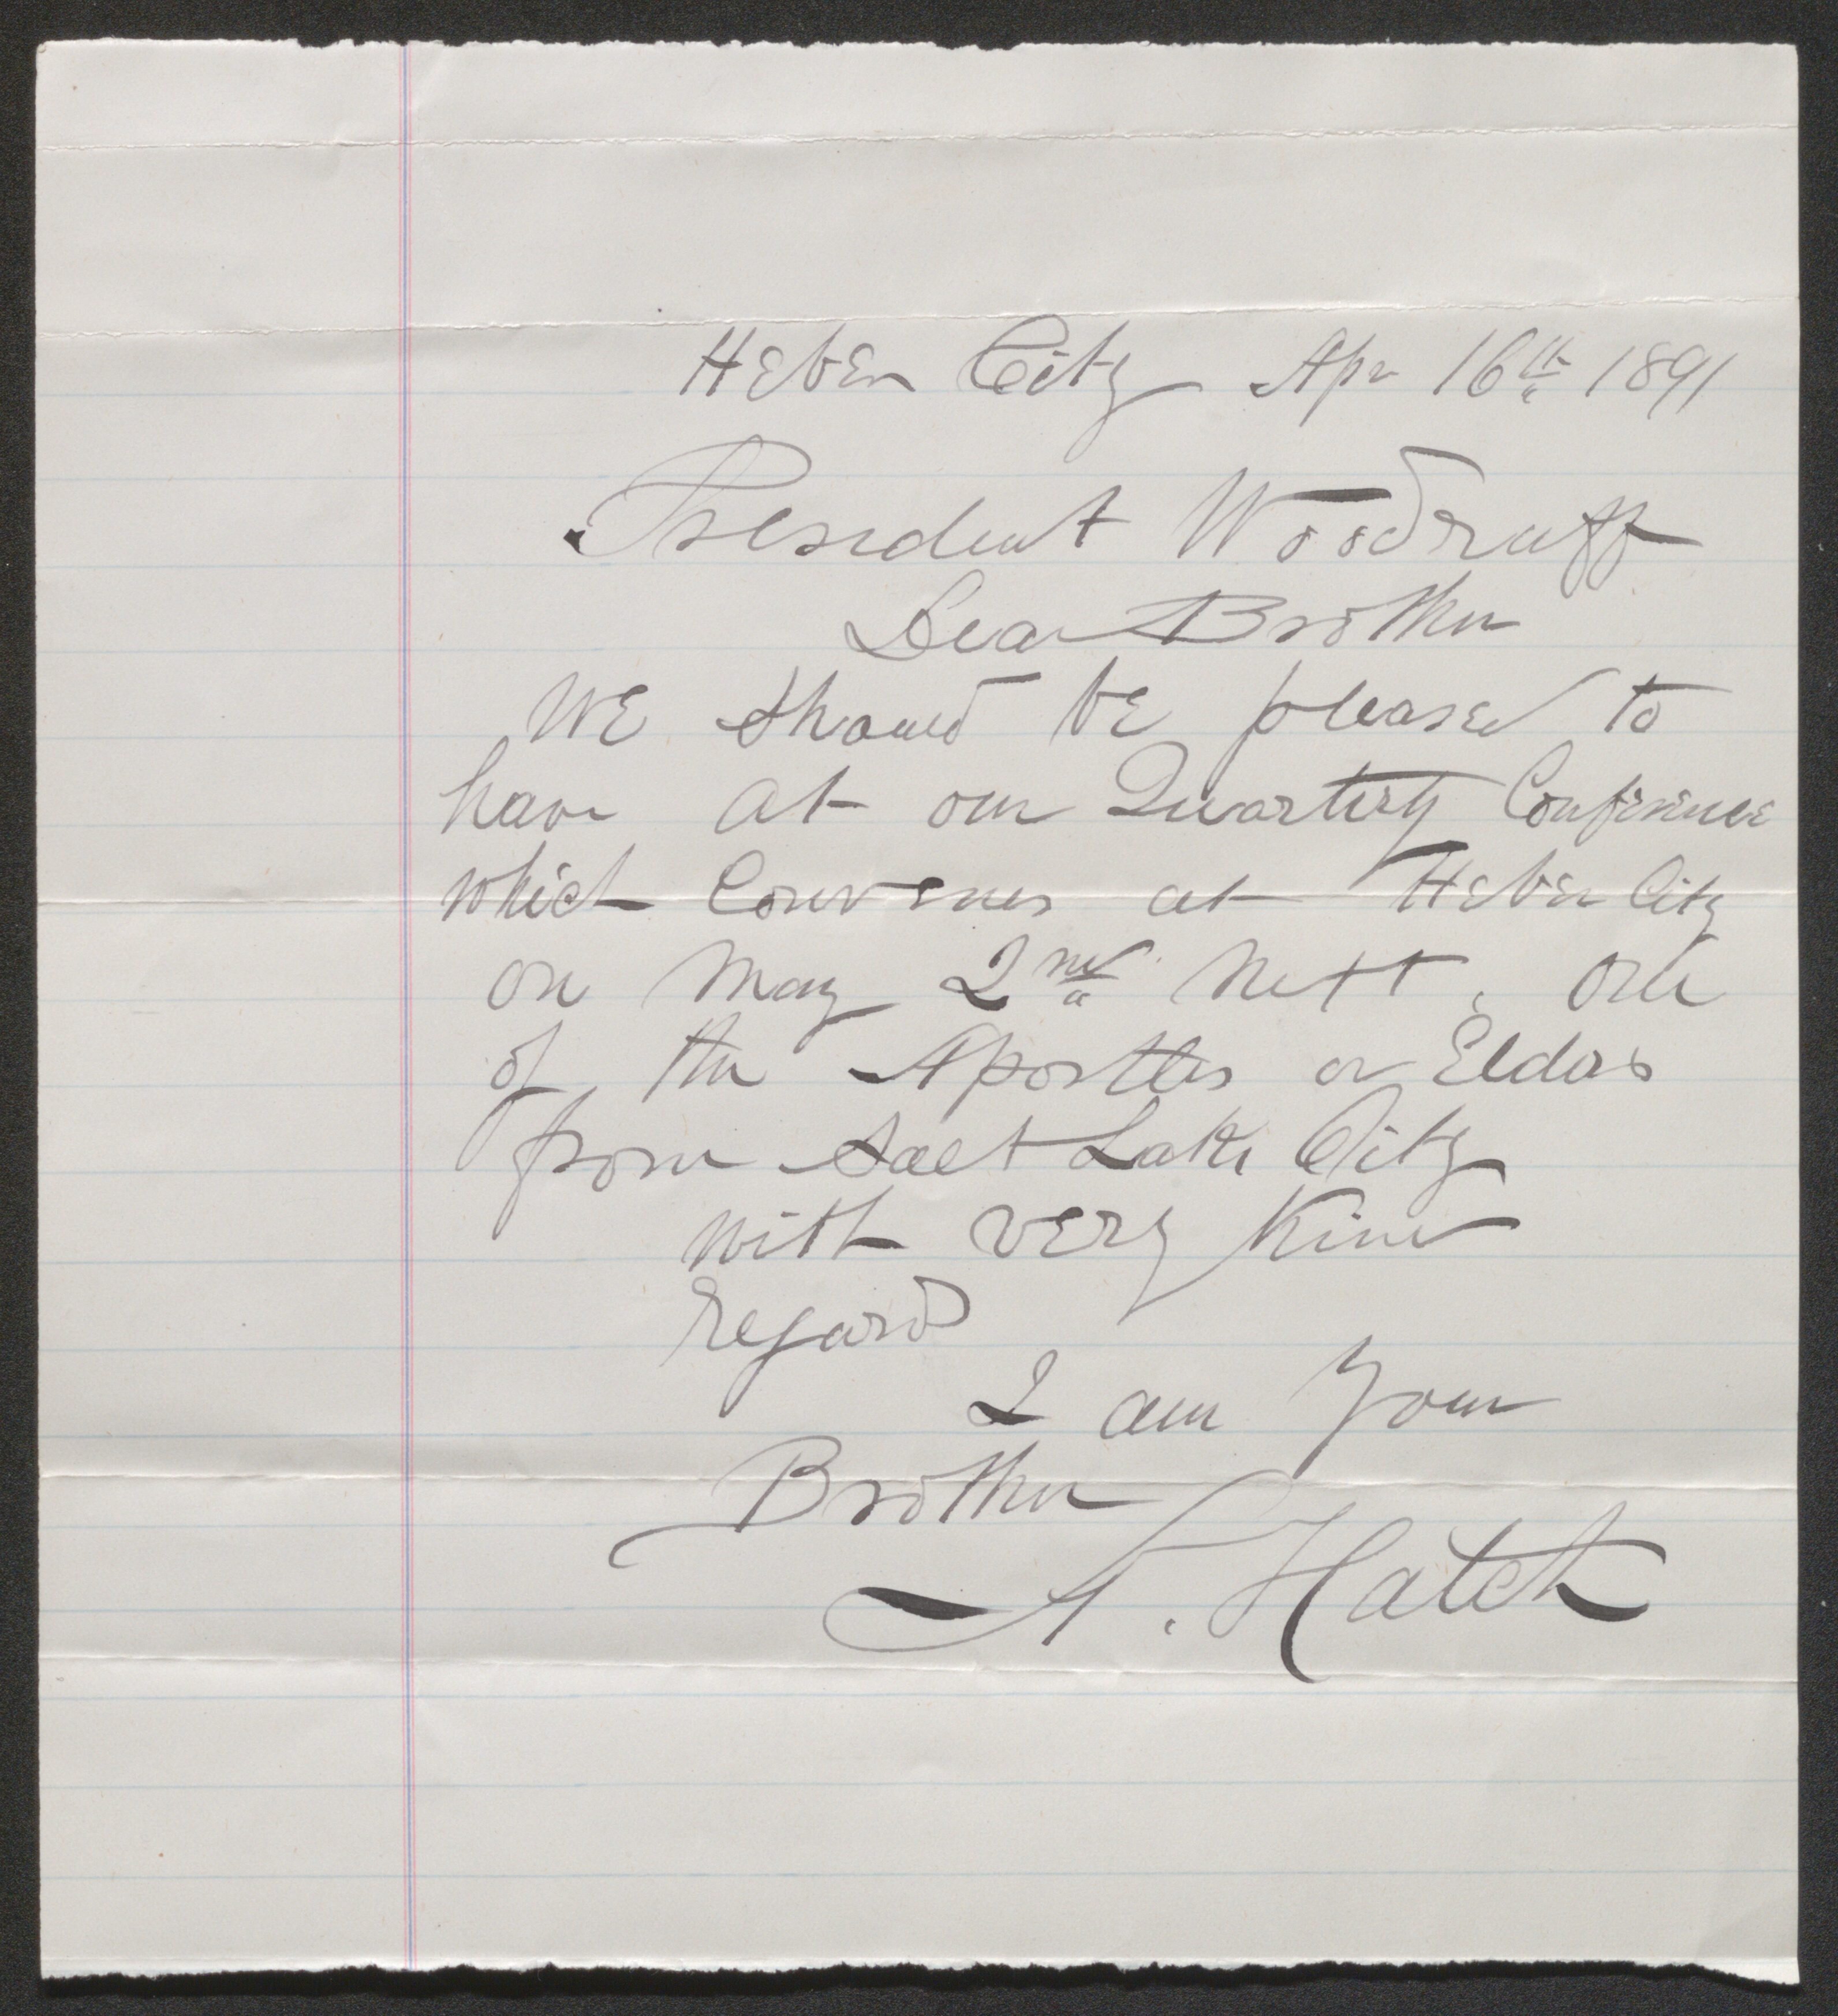 Heber City Apr 16th 1891
President Woodruff
Dear Brother
We should be pleased to
have at our Quarterly Conference
which Convenes at Heber City
on May 2nd next, one
of the Apostles or Elders
from Salt Lake City
with very Kind
regard
I am Your
Brother
A. Hatch